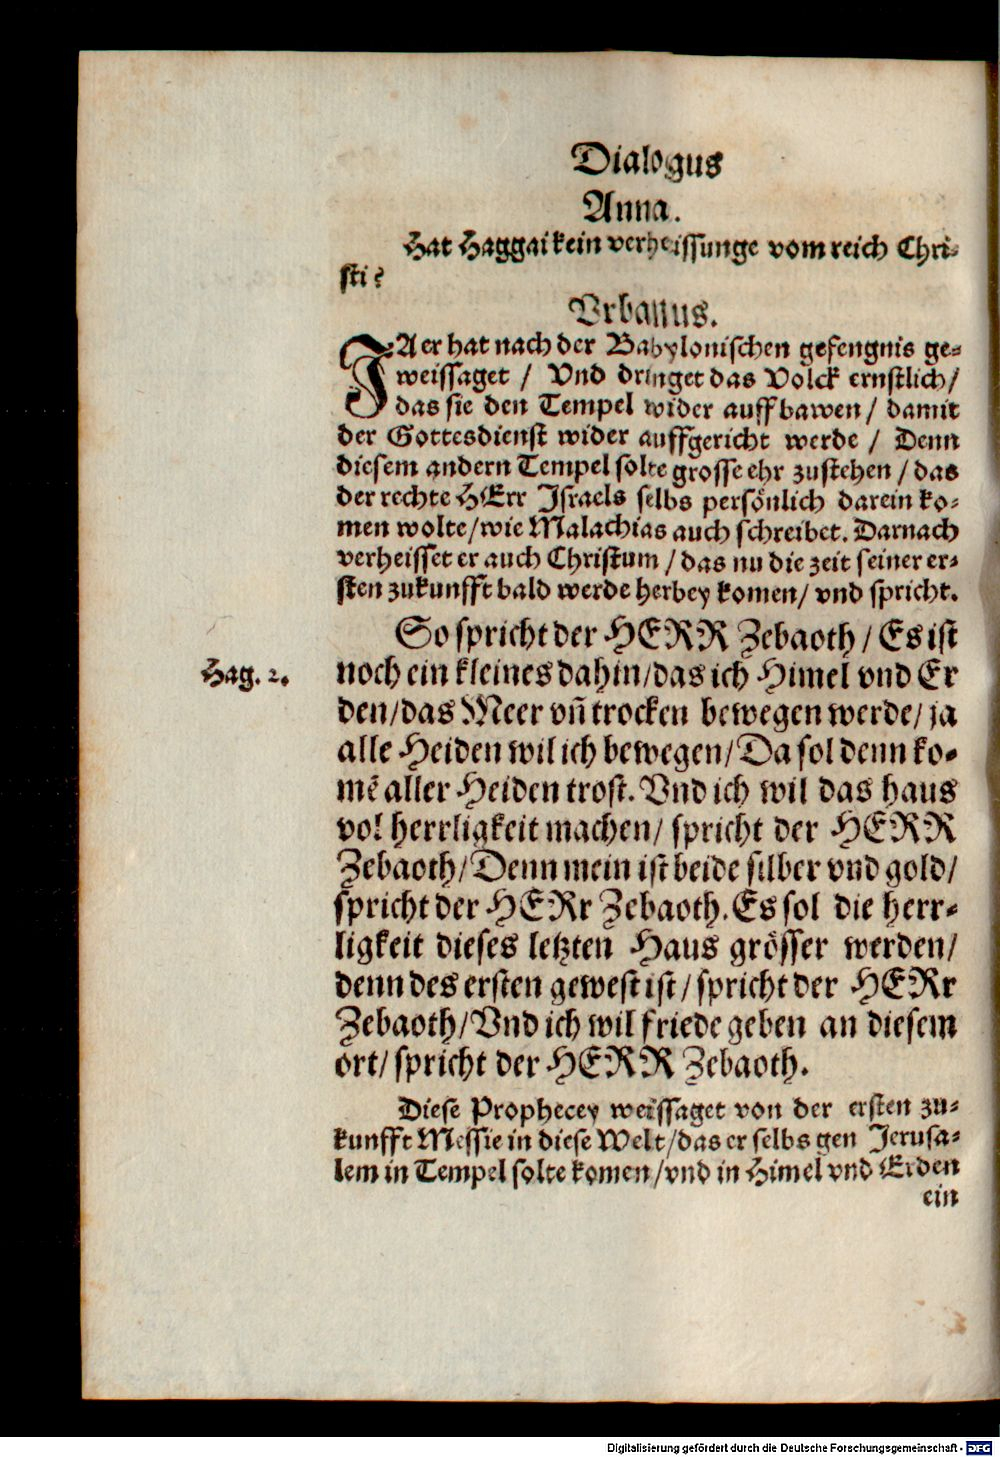 Dialogus
Anna.
Hat Haggai kein verheissunge vom reich Chri-
sti?
Vrbanus.
JA er hat nach der Babylonischen gefengnis ge-
weissaget / Vnd dringet das Volck ernstlich/
das sie den Tempel wider auffbawen / damit
der Gottesdienst wider auffgericht werde / Denn
diesem andern Tempel solte grosse ehr zustehen / das
der rechte HErr Israels selbs persönlich darein ko-
men wolte/wie Malachias auch schreibet. Darnach
verheisset er auch Christum / das nu die zeit seiner er-
sten zukunfft bald werde herbey komen/ vnd spricht.
So spricht der HERR Zebaoth / Es ist
Hag. 2.
noch ein kleines dahin/das ich Himel vnd Er
den/das Meer vñ trocken bewegen werde/ ja
alle Heiden wil ich bewegen/Da sol denn ko-
mẽ aller Heiden trost. Vnd ich wil das haus
vol herrligkeit machen/ spricht der HERR
Zebaoth/Denn mein ist beide silber vnd gold/
spricht der HERr Zebaoth. Es sol die herr-
ligkeit dieses letzten Haus grösser werden/
denn des ersten gewest ist/ spricht der HERr
Zebaoth/Vnd ich wil friede geben an diesem
ort/ spricht der HERR Zebaoth.
Diese Prophecey weissaget von der ersten zu-
kunfft Messie in diese Welt/das er selbs gen Jerusa-
lem in Tempel solte komen/vnd in Himel vnd Erden
ein
Digitalisierung gefördert durch die Deutsche Forschungsgemeinschaft - DFG